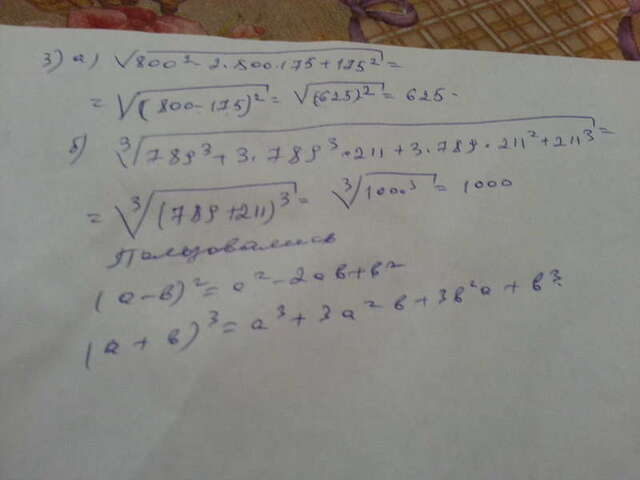 3) а) √800² - 2·800·175 + 175² =
= √(800-175)² = √(625)² = 625.
б) ³√789³ + 3·789³·211 + 3·789·211² + 211³ =
= ³√(789+211)³ = ³√1000³ = 1000
Пользовались
(a-b)² = a² - 2ab + b²
(a+b)³ = a³ + 3a²b + 3b²a + b³